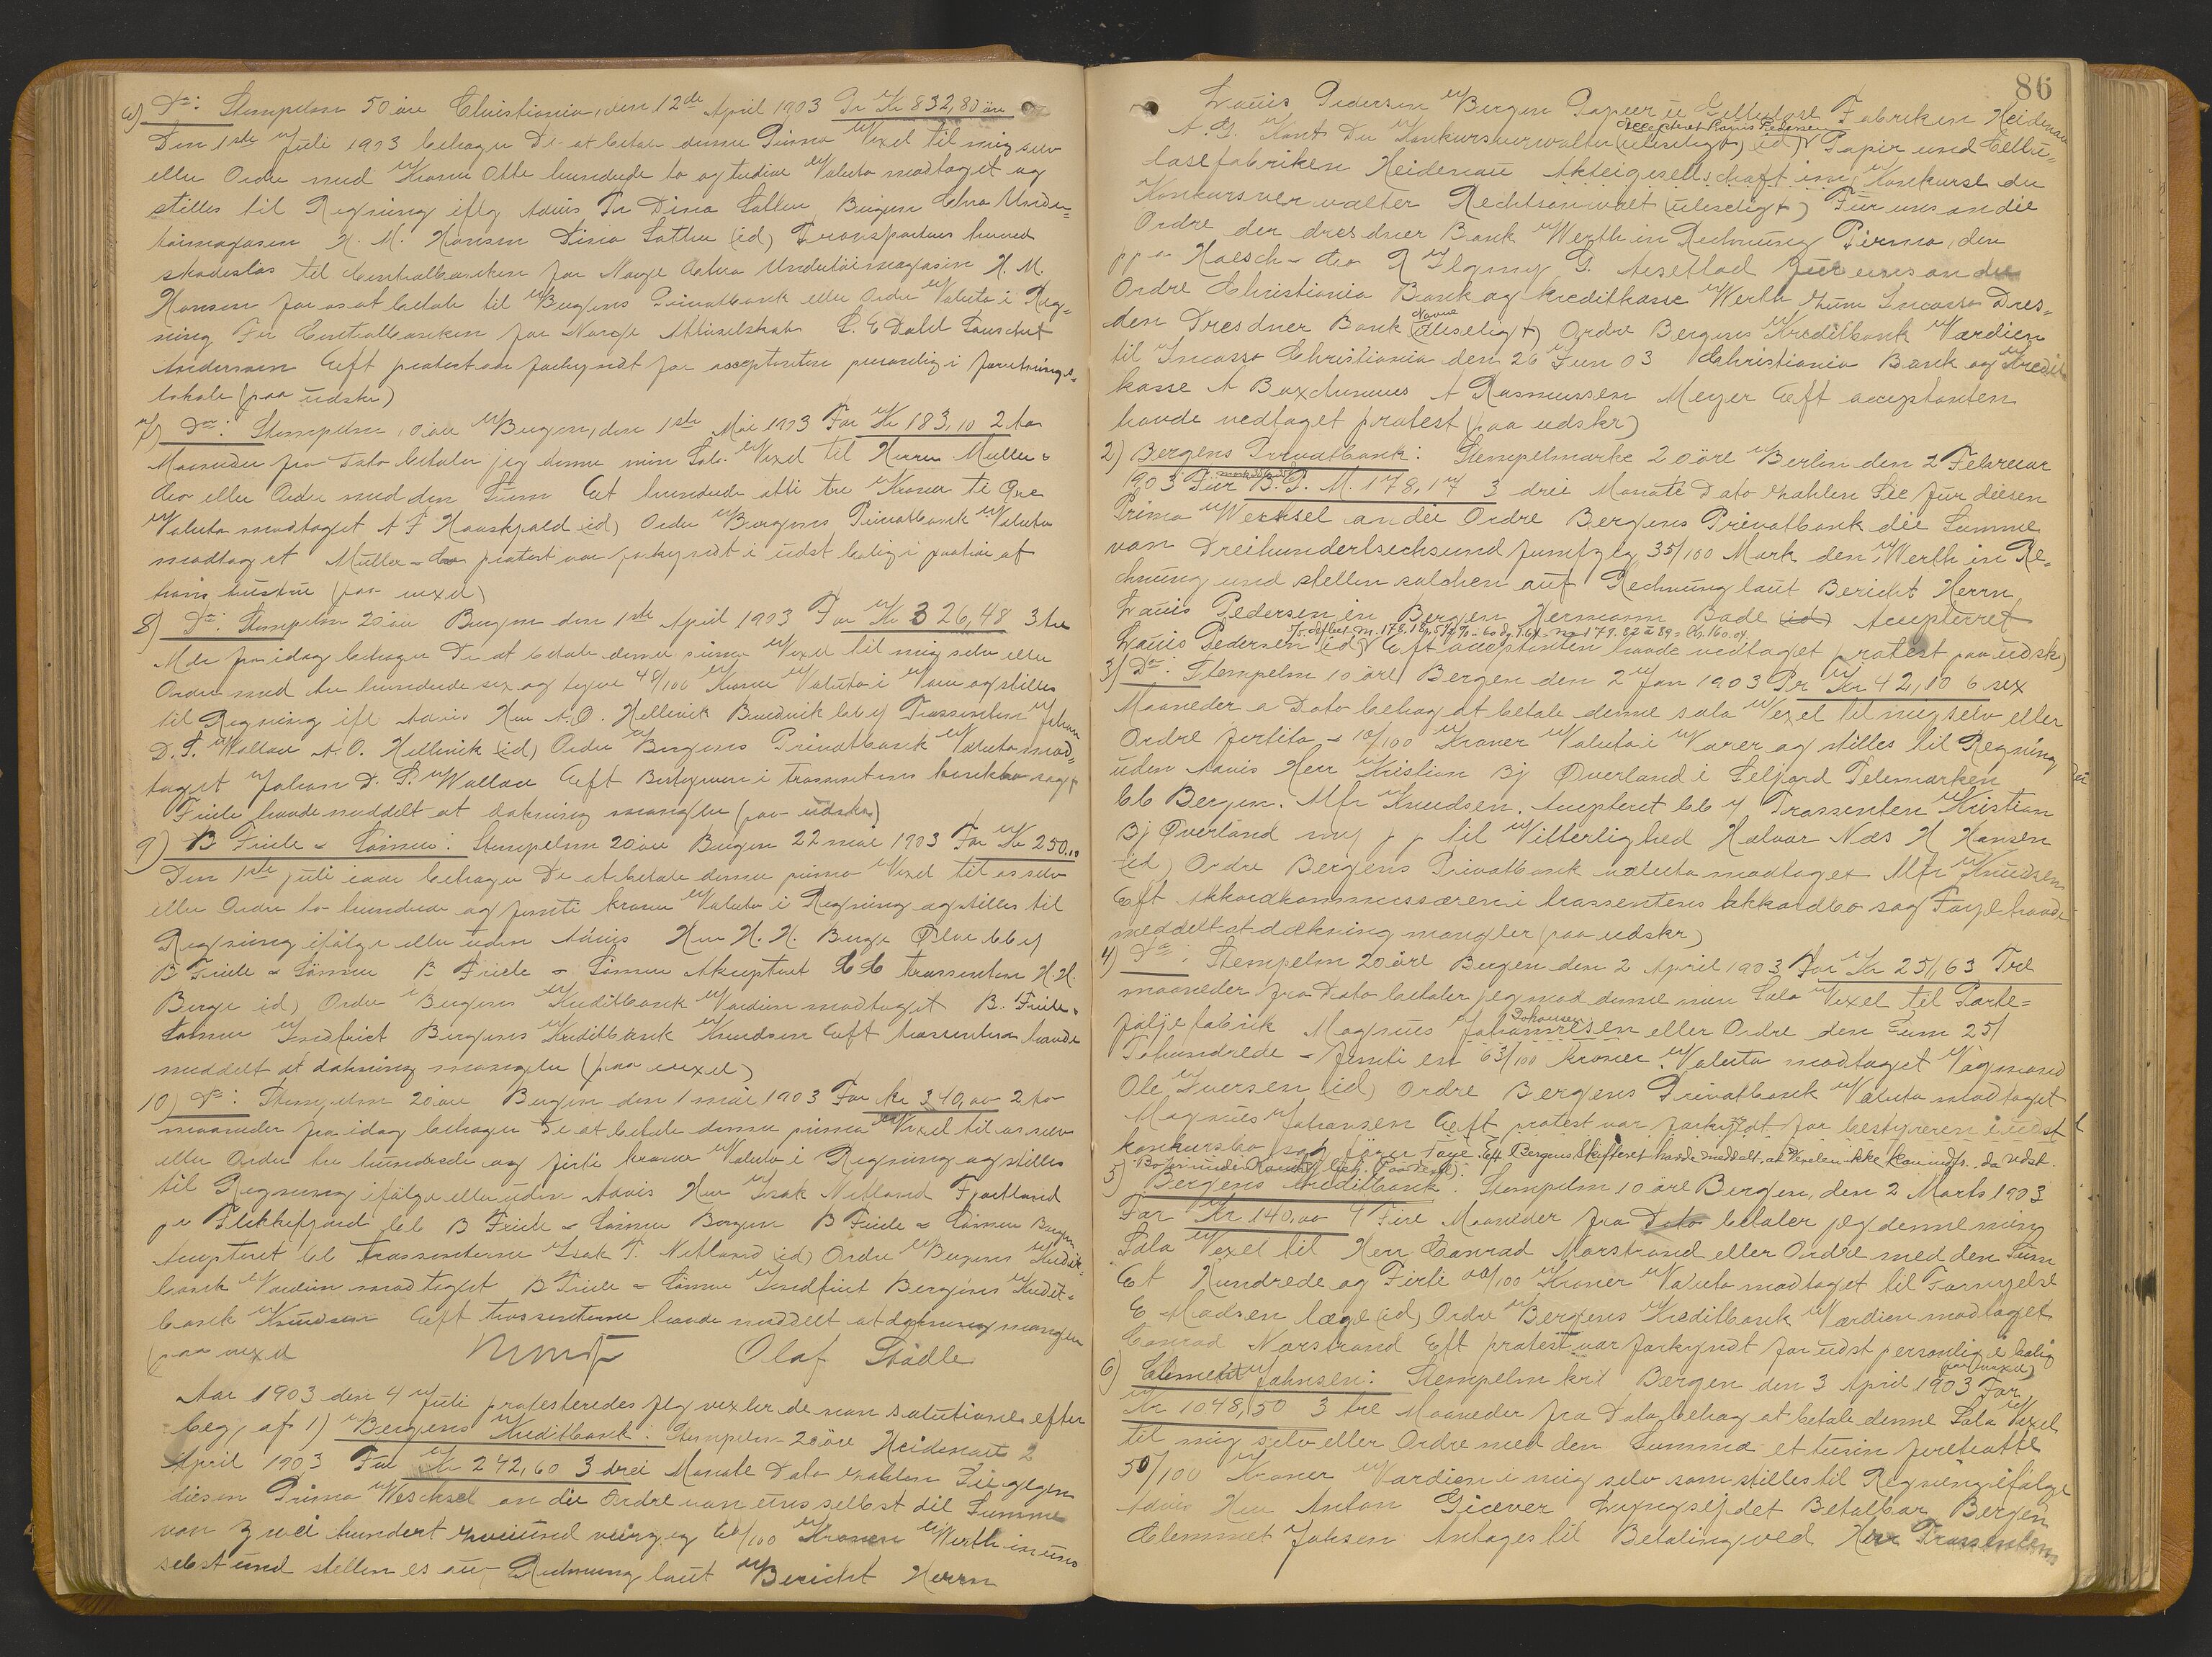 6) Do: Stempelm 50 öre Christiania, den 12de April 1903 Pr Kr 832,80 öre
Den 1ste Juli 1903 behager De at betale denne Prima Vexel til mig selv
eller Ordre med Kroner Otte hundrede to og tredive Valuta modtaget og
stilles til Regning iflg Advis Fru Dina Bergen Under=
töimagasin H. M. Hansen Dina (id) Transporteres herved
skadeslös til Centralbanken for Norge Undertöimagasin H. M.
Hansen for os at betale til Bergens Privatbank eller Ordre Valuta i Reg=
ning For Centralbanken for Norge Aktieselskab
Andersen Eeft protest var forkyndt for acceptanten personlig i forretnings=
lokale (paa udskr)
7) Do: Stempelm 10 öre Bergen, den 1ste Mai 1903 For Kr 183,10 2 to
Maaneder fra Dato betaler jeg denne min Sola Vexel til Herrer Müller &
Co eller Ordre med den Sum Et hundrede otti tre Kroner ti Öre
Valuta modtaget A F (id) Ordre Bergens Privatbank Valuta
modtaget Müller & Co protest var forkyndt i udst bolig i paahör af
hans hustru (paa vexel)
8) Do: Stempelm 20 öre Bergen den 1ste April 1903 For Kr 326,48 3 tre
Mdr fra idag behager De at betale denne prima Vexel til mig selv eller
Ordre med tre hundrede sex og tyve 48/100 Kroner Valuta i Varer og stilles
til Regning ifl Advis Herr A. O. Hellevik Bredvik bb Trassenten Johan
D. S. Wallace A. O. Hellevik (id) Ordre Bergens Privatbank Valuta mod=
taget Johan D. S. Wallace Eeft Bestyreren i trassentens konkbo sagf
Friele havde meddelt at dækning mangler (paa udskr)
9) B Friele & Sönner: Stempelm 20 öre Bergen 22 mai 1903 For Kr 250.00
Den 1ste juli iaar behager De at betale denne prima Vexel til os selv
eller Ordre to hundrede og femti kroner Valuta i Regning og stilles til
Regning ifölge eller uden Advis Herr H. H. Berge Ölve bb
B Friele & Sönner B Friele & Sönner Akcepteret bb trassenten H. H.
Berge (id) Ordre Bergens Kreditbank Værdien modtaget B. Friele &
Sönner Indfriet Bergens Kreditbank Knudsen Eeft trassenten havde
meddelt at dækning mangler (paa vexel)
10) Do: Stempelm 20 öre Bergen den 1 mai 1903 For kr 340,00 2 to
maaneder fra idag behager De at betale denne prima Vexel til os selv
eller Ordre tre hundrede og firti kroner Valuta i Regning og stilles
til Regning ifölge eller uden Advis Herr Isak Netland Fjotland
pr Flekkefjord bb B Friele & Sönner Bergen B Friele & Sönner Bergen
Accepteret bb trassenterne Isak T. Netland (id) Ordre Bergens Kredit=
bank Værdien modtaget B Friele & Sönner Indfriet Bergens Kredit=
bank Knudsen Eeft trassenterne havde meddelt at dækning mangler
(paa vexel Olaf Städle
Aar 1903 den 4 Juli protesteredes flg vexler de non solutione efter
beg, af 1) Bergens Kreditbank: Stempelm 20 öre Heidenau 2
April 1903 Für Kr 242,60 3 drei Monate Dato zahlen Sie gegen
diesen Prima Wechsel an die Ordre von uns selbst die Summe
von zwei hundert zweiund vierzig 60/100 Kronen Werth in uns
selbst und stellen es auf Rechnung laut Bericht Herrn
86
Lauis Pedersen Bergen Papier u Cellulose Fabriken Heidenau
Accepteret Lauis Pedersen
A. G. Konk Der Konkursverwalter (ulæseligt) (id) Papir und Cellu=
losefabriken Heidenau Akteigesellschaft im Konkurse der
Konkursverwalter Rechtsanwalt (ulæseligt) Für uns an die
Ordre der dresdner Bank Werth in Rechnung Pirma, den
ppa Hoesch & Co R Für uns an die
Ordre Christiania Bank og Kreditkasse Werth zum Incasso Dres=
Navne
den Dresdner Bank (ulæseligt) Ordre Bergens Kreditbank Værdien
til Incasso Christiania den 26 Jun 03 Christiania Bank og Kredit
kasse A A Rasmussen Meyer Eeft acceptanten
havde vedtaget protest (paa udskr)
2) Bergens Privatbank: Stempelmarke 20 öre Berlin den 2 Februar
903 Für M. 178,17 3 drei Monate Dato zahlen Sie für diesen
Prima Wechsel an die Ordre Bergens Privatbank die Summe
von Dreihundertsechsund fumfzig 35/100 Mark den Werth in Re=
chnung und stellen solchen auf Rechnung laut Bericht Herrn
Lauis Pedersen in Bergen Hermann Bade (id) Accepterret
Lauis Pedersen (id) Eft acceptanten havde vedtaget protest paa udsk)
3) Do: Stempelm 10 öre Bergen den 2 Jan 1903 Pr Kr 42,10 6 sex
Maaneder a Dato behag at betale denne sola Vexel til mig selv eller
Ordre førtito & 10/100 Kroner Valuta i Varer og stilles til Regning
uden Advis Herr Kristian Bj Øverland i Seljord Telemarken
bb Bergen. Mfr Knudsen. Accepteret bb Trassenten Kristian
Bj Øverland mf p p til Vitterlighed Halvor Næs H Hansen
(id) Ordre Bergens Privatbank valuta modtaget Mfr Knudsen
Eft Akkordkommissæren i trassentens akkordbo sagf Faye havde
meddelt at dækning mangler (paa udskr)
4) Do: Stempelm 20 öre Bergen den 2 April 1903 For Kr 251,63 Tre
maaneder fra Dato betaler jeg mod denne min Sola Vexel til Porte=
Johansen
føljefabrik Magnus Johannesen eller Ordre den Sum 251
Tohundrede & femti en 63/100 kroner Valuta modtaget Vognmand
Ole Iversen (id) Ordre Bergens Privatbank Valuta modtaget
Magnus Johansen Eeft protest var forkyndt for bestyreren i udst
konkursbo sagfører Faye. Eft Bergens Skifteret havde meddelt, at Vexelen ikke kan indfr. da udst.
Bo er under Konkurs beh. (Paa vexel).
5) Bergens Kreditbank: Stempelm 10 öre Bergen, den 2 Marts 1903
For Kr 140,00 4 Fire Maaneder fra Dato betaler jeg denne min
Sola Vexel til Herr Conrad Morstrand eller Ordre med den Sum
Et Hundrede og Firti 00/100 Kroner Valuta modtaget til Fornyelse
E Madsen læge (id) Ordre Bergens Kreditbank Værdien modtaget
Conrad Norstrand Eft protest var forkyndt for udst personlig i bolig
(paa vexel)
6) Clement Johnsen: Stempelm kr 1 Bergen den 3 April 1903 For
Kr 1048,50 3 tre Maaneder fra Dato behag at betale denne Sola Vexel
til mig selv eller Ordre med den Summa et tusin førtiotte
50/100 Kroner Værdien i mig selv som stilles til Regning ifølge
Advis Herr Anton Giæver Lyngseidet Betalbar Bergen
Clemmet Johsen Antages til Betaling ved Herr Trassentens